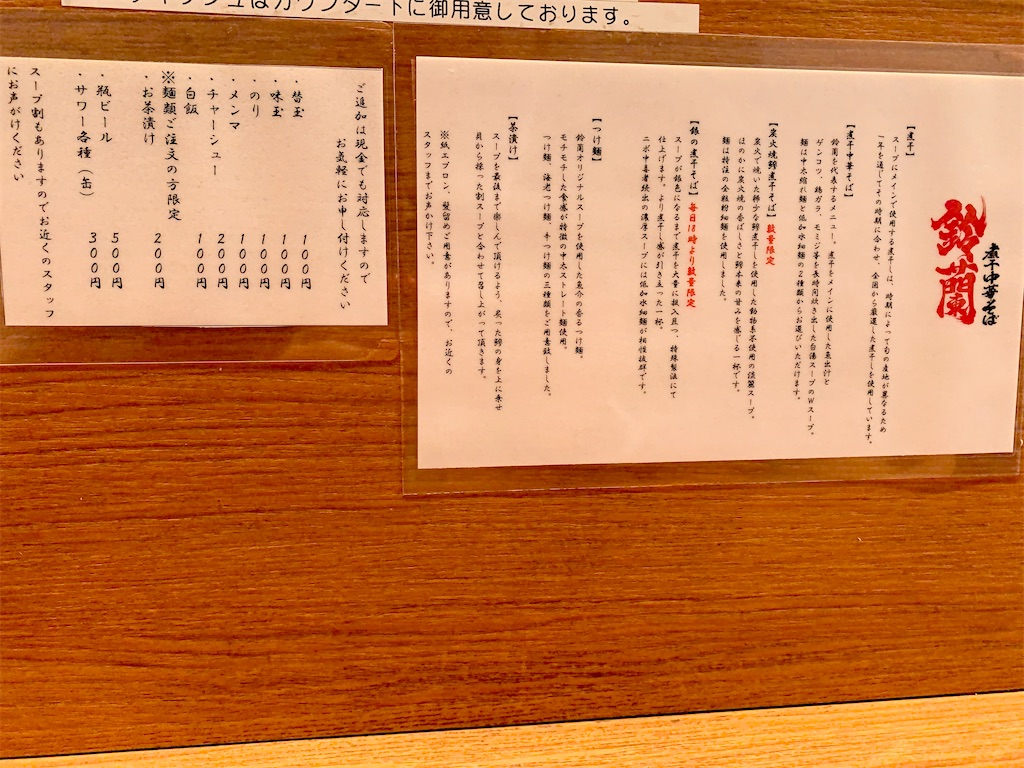 ティッシュはカウンター下に御用意しております。
煮干中華そば
鈴蘭
【煮干】
スープにメインで使用する煮干しは、時期によって旬の産地が異なるため
一年を通してその時期に合わせ、全国から厳選した煮干しを使用しています。
【煮干中華そば】
鈴蘭を代表するメニュー。煮干をメインに使用した魚出汁と
ゲンコツ、鶏ガラ、モミジ等を長時間炊き出した白湯スープのWスープ。
麺は中太縮れ麺と低加水細麺の2種類からお選びいただけます。
【炭火焼鯵煮干そば】数量限定
炭火で焼いた稀少な鯵煮干しを使用した動物系不使用の淡麗スープ。
ほのかに炭火焼の香ばしさと鯵本来の甘みを感じる一杯です。
麺は特注の全粒粉細麺を使用しました。
【銀の煮干そば】毎日18時より数量限定
スープが銀色になるまで煮干を大量に投入且つ、特殊製法にて
仕上げます。より煮干し感が引き立った一杯。
ニボ中毒者続出の濃厚スープには低加水細麺が相性抜群です。
【つけ麺】
鈴蘭オリジナルスープを使用した魚介の香るつけ麺。
モチモチした食感が特徴の中太ストレート麺使用。
つけ麺、海老つけ麺、辛つけ麺の三種類をご用意致しました。
【茶漬け】
スープを最後まで楽しんで頂けるよう、炙った鯵の身を上に乗せ
貝から採った割スープと合わせて召し上がって頂きます。
※紙エプロン、髪留めご用意がありますので、お近くの
スタッフまでお声かけ下さい。
ご追加は現金でも対応しますので
お気軽にお申し付けください
・替玉 100円
・味玉 100円
・のり 100円
・メンマ 100円
・チャーシュー 200円
・白飯 100円
※麺類ご注文の方限定
・お茶漬け 200円
・瓶ビール 500円
・サワー各種(缶) 300円
スープ割もありますのでお近くのスタッフ
にお声がけください